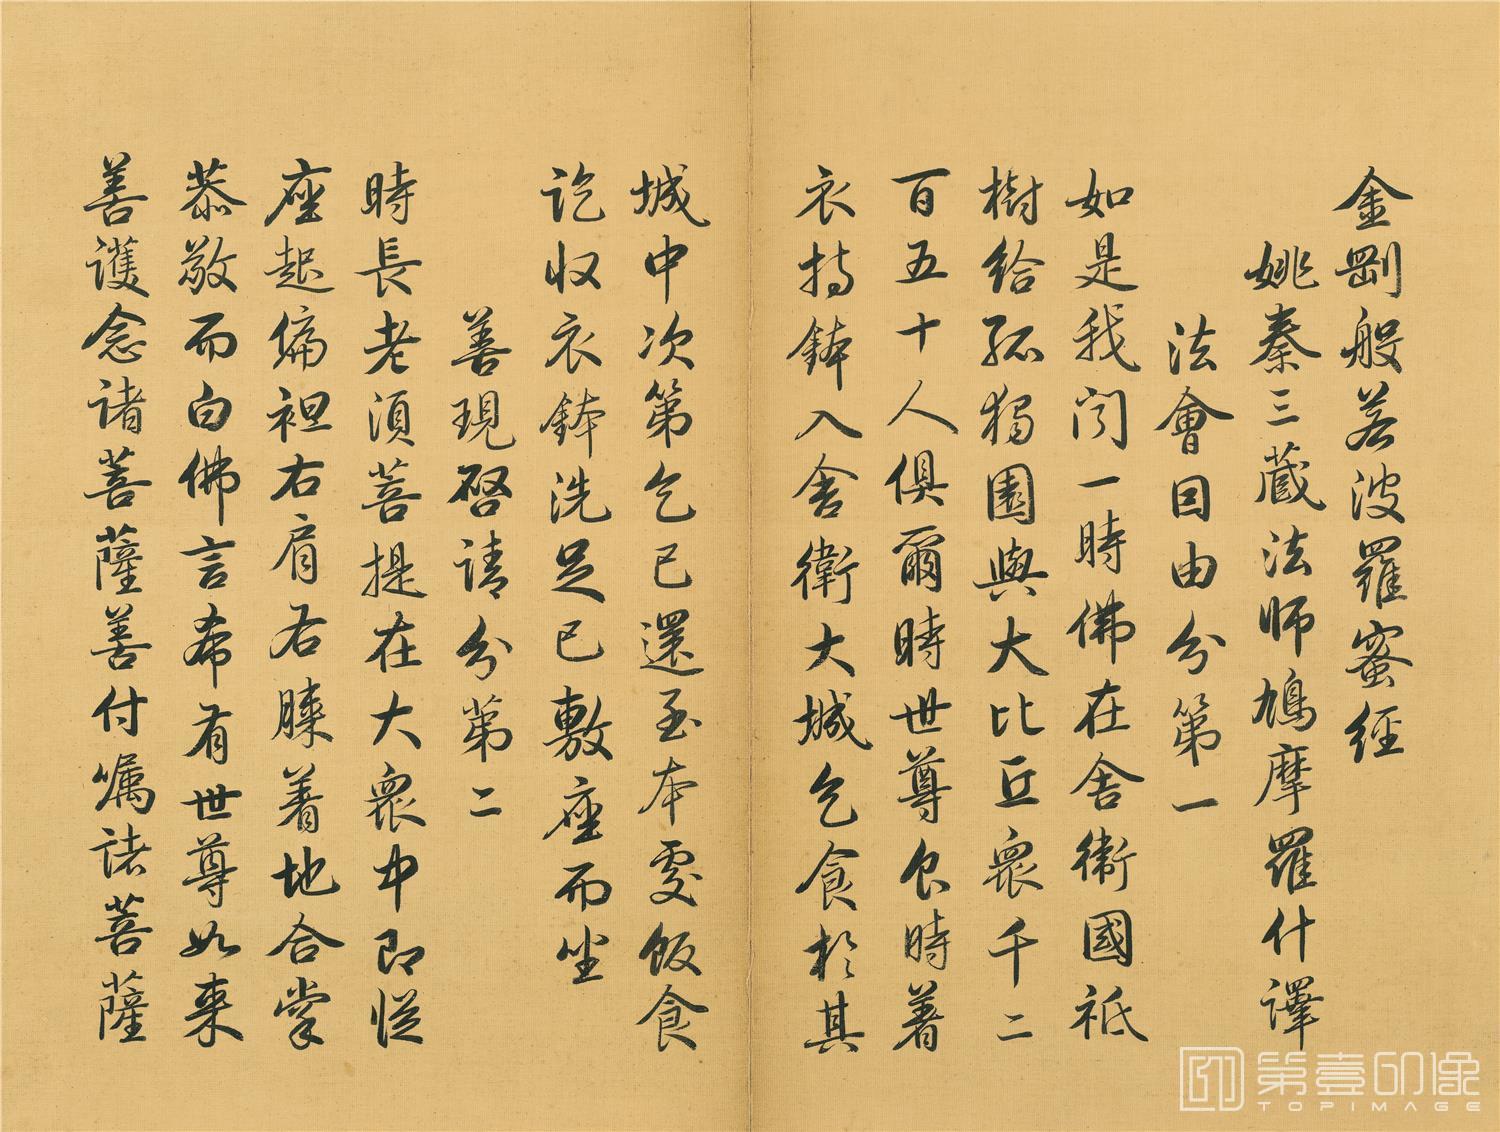 金剛般若波羅蜜經
姚秦三藏法師鳩摩羅什譯
法會因由分第一
如是我聞一時佛在舍衛國祇
樹給孤獨園與大比丘眾千二
百五十人俱爾時世尊食時着
衣持鉢入舍衛大城乞食於其
城中次第乞已還至本處飯食
訖收衣鉢洗足已敷座而坐
善現啓請分第二
時長老須菩提在大眾中即從
座起偏袒右肩右膝着地合掌
恭敬而白佛言希有世尊如来
善護念諸菩薩善付囑諸菩薩
第壹印像
TOPIMAGE